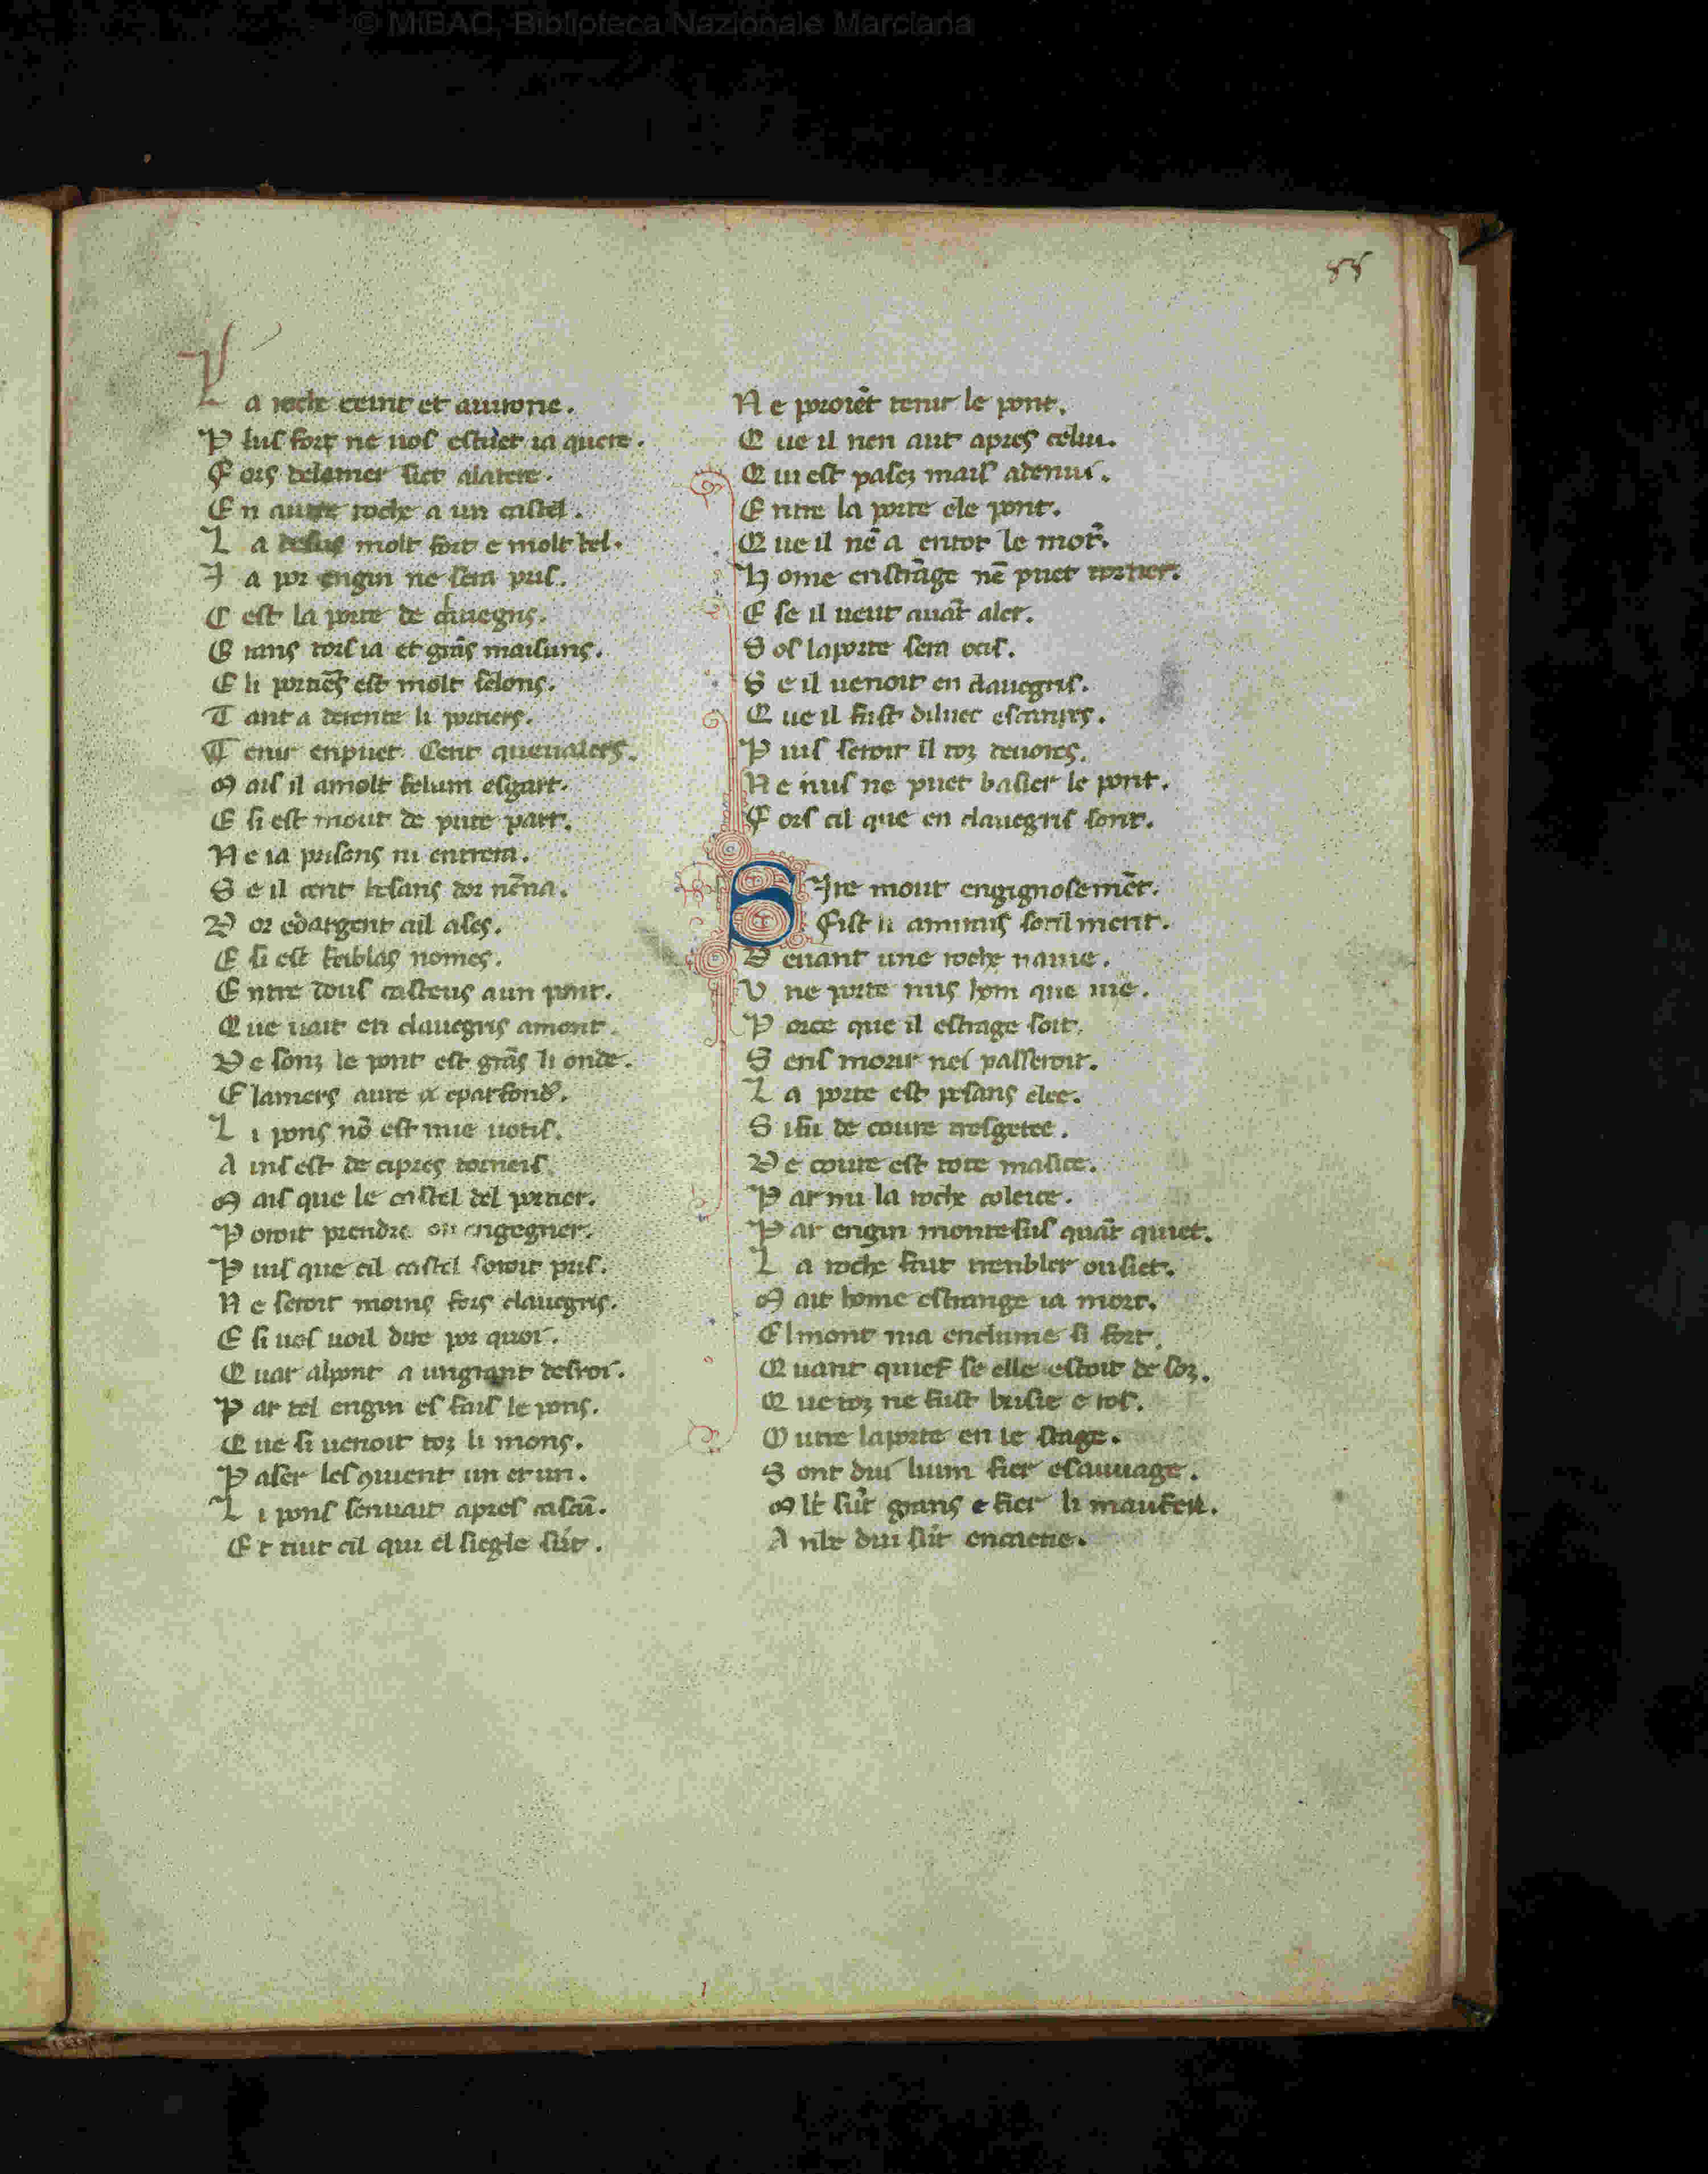 © MiBAC, Biblioteca Nazionale Marciana
88
L a roche ceint et auirone.
P lus fort ne uos estuet ia quere.
F ors delamer siet alatere.
E n autre roche a un castel.
L a desus molt fort e molt bel.
I a por engin ne sera pris.
C est la porte de clauegris.
G rans tors ia et grãs maisuns.
E li portiẽs est molt felons.
T ant a detente li portiers.
T enir enpuet Cent queualers.
M ais il amolt felum esgart.
E si est mout de pute part.
N e ia prisons ni entrera.
S e il cent besans dor nẽna.
D or edargent ail ases.
E si est feiblas nomes.
E ntre dous casteus aun pont.
Q ue uait en clauegris amont.
D e sonz le pont est grãs li onde.
E lamers aure
L i pons nõ est mie uotis.
A ins est de cipres torneis.
M ais que le castel del portier.
P oroit prendre ou engegner.
P uis que cil castel soroit pris.
N e seroit moins fors clauegris.
E si uos uoil dire por quoi.
Q uar alpont a ungrant desroi.
P ar tel engin es fais le pons.
Q ue si uenoit toz li mons.
P aser les 9uient un et un.
L i pons senuait apres cascũ.
E t tiut cil qui el siegle sũt.
N e poroiẽt tenir le pont.
Q ue il nen aut apres celui.
Q ui est pasez mais atenui.
E ntre la porte ele pont.
Q ue il nẽ a entor le mot.
H ome enstrãge nẽ puet torner.
E se il ueut auãt aler.
S os laporte sera ocis.
S e il uenoit en clauegris.
Q ue il fust diluec escanpes.
P uis seroit il toz deuores.
N e nus ne puet basier le pont.
F ors cil que en clauegris sont.
S Ire mout engignosemẽt.
Fist li aumins sotilment.
D euant une roche naiue.
U ne porte nus hom que uie.
P orce que il estrage soit.
S ens morir nel passeroit.
L a porte est pesans elee.
S ifu de coure tresgetee.
D e coure est tote masice.
P armi la roche coleice.
P ar engin montesus quãt quiet.
L a roche fait trenbler ousiet.
M ait home estrange ia mort.
E lmont ma enclume si fort.
Q uant quief se elle estoit de soz.
Q ue toz ne fust brisie e ros.
O utre laporte en le stage.
S ont dui luim fier esauuage.
M lt sũt grans e fier li maufeu.
A nbe dui sũt encaene.